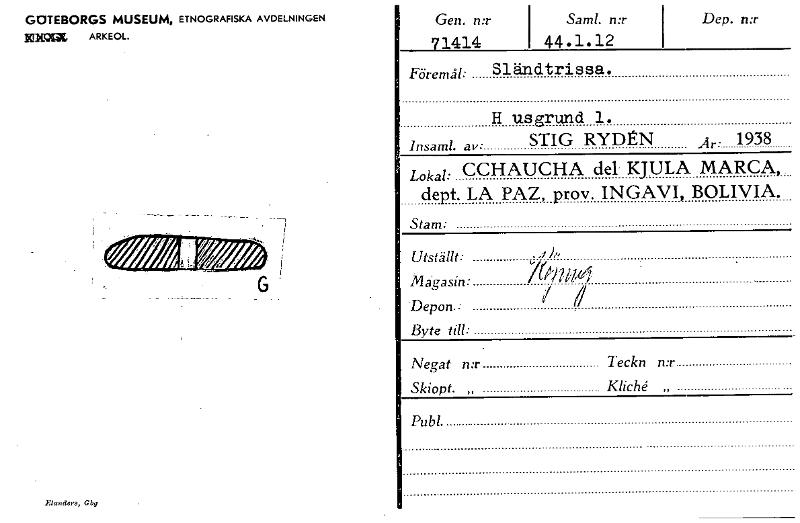 GÖTEBORGS MUSEUM, ETNOGRAFISKA AVDELNINGEN
ARKEOL.
G
Elanders, Gbg
Gen. n:r Saml. n:r Dep. n:r
71414 44.1.12
Föremål: Sländtrissa.
H usgrund 1.
Insaml. av: STIG RYDÉN År: 1938
Lokal: CCHAUCHA del KJULA MARCA,
dept. LA PAZ, prov. INGAVI, BOLIVIA.
Stam:
Utställt:
Magasin:
Depon.:
Byte till:
Negat n:r Teckn n:r
Skiopt. „ Kliché „
Publ.